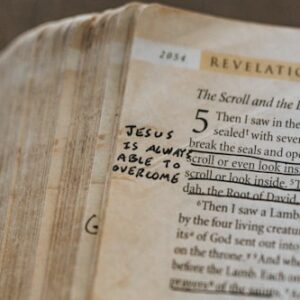 2054
REVELATIO
The Scroll and the
5 Then I saw in the
sealed with seve
break the seals and op
scroll or even look ins
scroll or look inside.
dah, the Root of David
Then I saw a Lamb
by the four living creatur
its of God sent out into
on the throne.
before the Lamb. Each
prayers of the
JESUS
IS ALWAYS
ABLE TO
OVERCOME
G